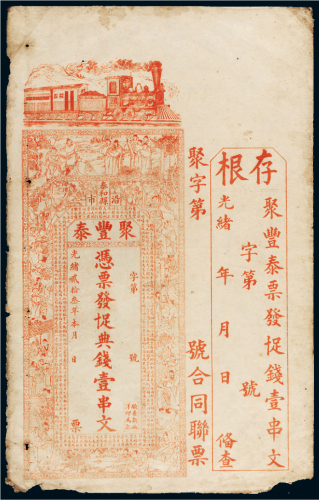 存根
聚豐泰票發足錢壹串文
字第 號
光緒 年 月 日 俻查
聚字第 號合同聯票
泰和縣
沿市
聚豐泰
字第 號
憑票發足典錢壹串文
光緒貳拾叁年本月 日 票